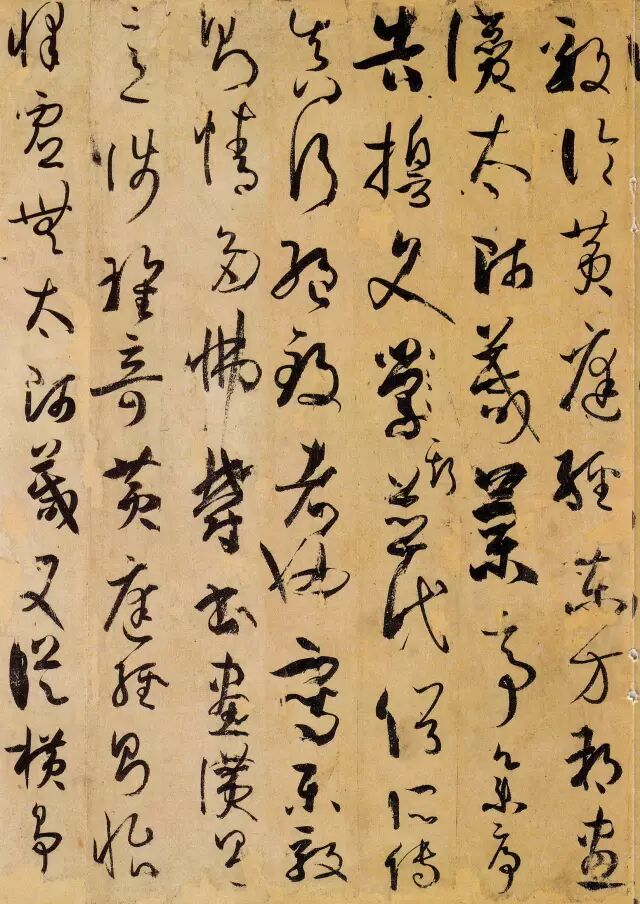 毅論黃庭經東方朔畫
讚太師箴蘭亭集序
告誓文斯並代俗所傳
真行絕致者也寫樂毅
則情多怫鬱書畫讚則
意涉瑰奇黃庭經則怡
懌虛無太師箴又從橫爭